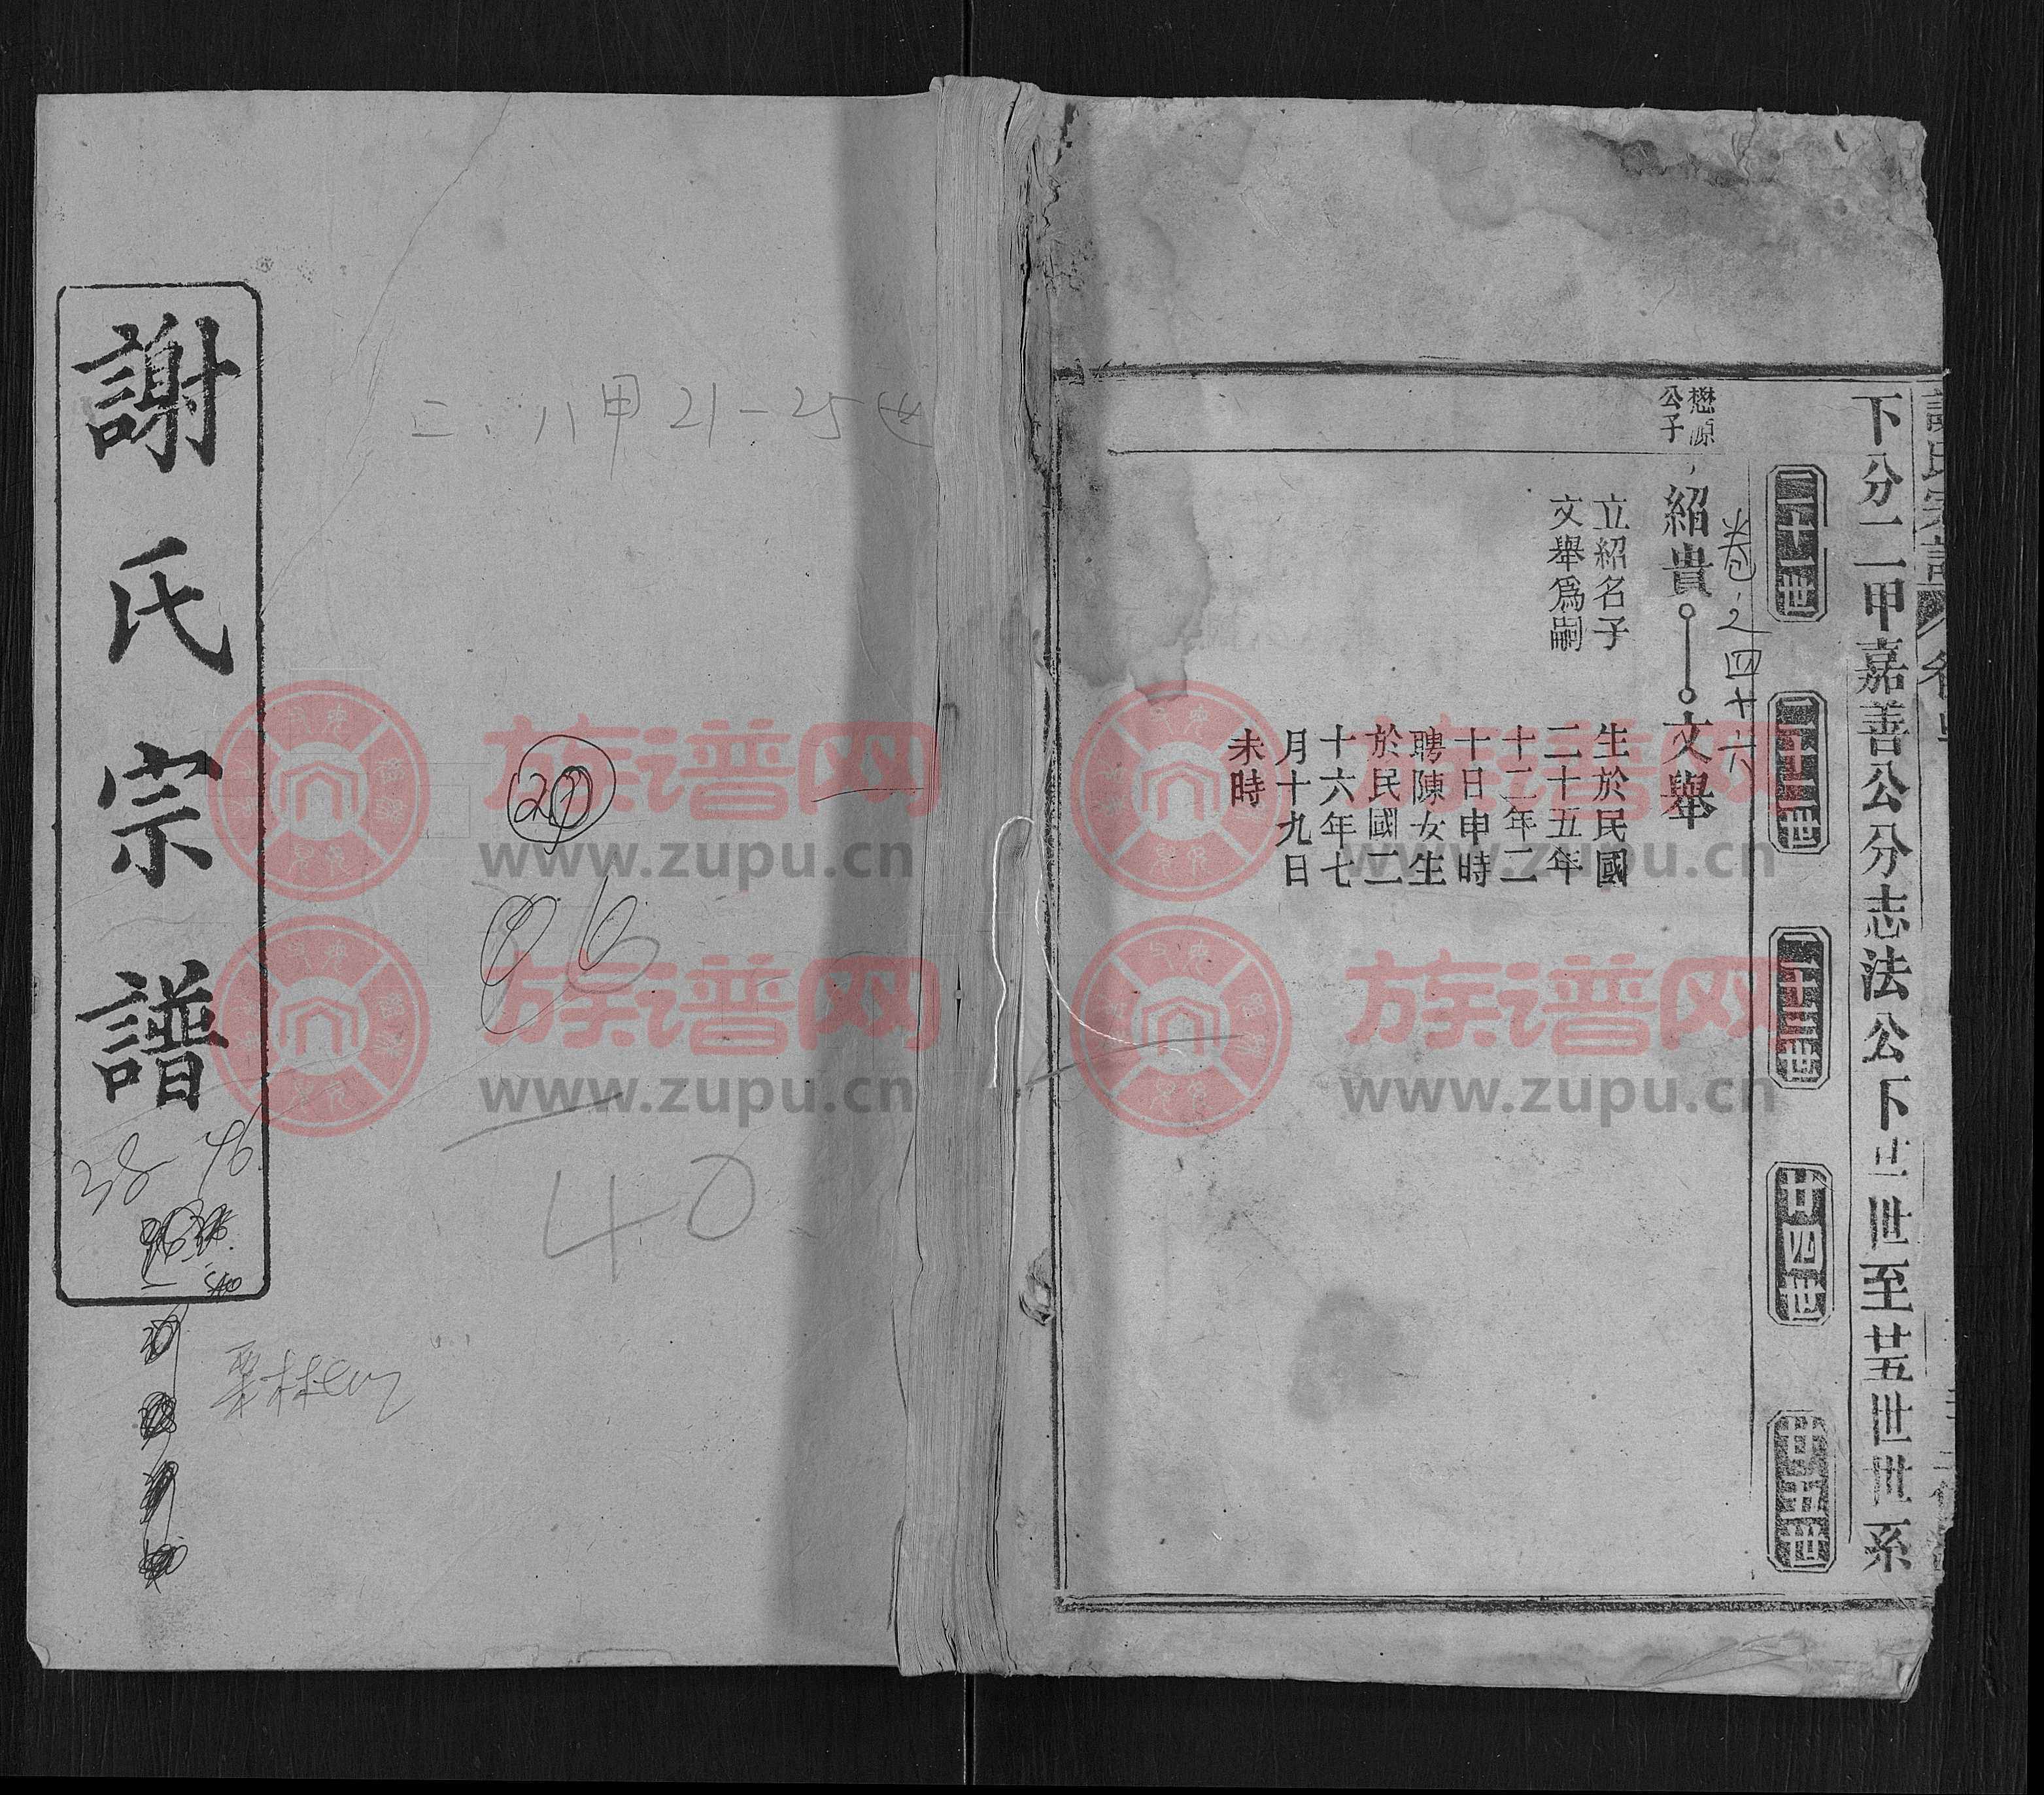 下分二甲嘉善公分志法公下廿一世至廿五世世系
二十一世
二十二世
二十三世
廿四世
廿五世
卷之四十六
懋源
公子
紹貴 文舉
立紹名子
文舉爲嗣
生於民國
二十五年
十二年二
十日申時
聘陳女生
於民國二
十六年七
月十九日
未時
二、八甲21-25世
40
謝氏宗譜
38 46
族谱网
www.zupu.cn
族谱网
www.zupu.cn
族谱网
www.zupu.cn
族谱网
www.zupu.cn